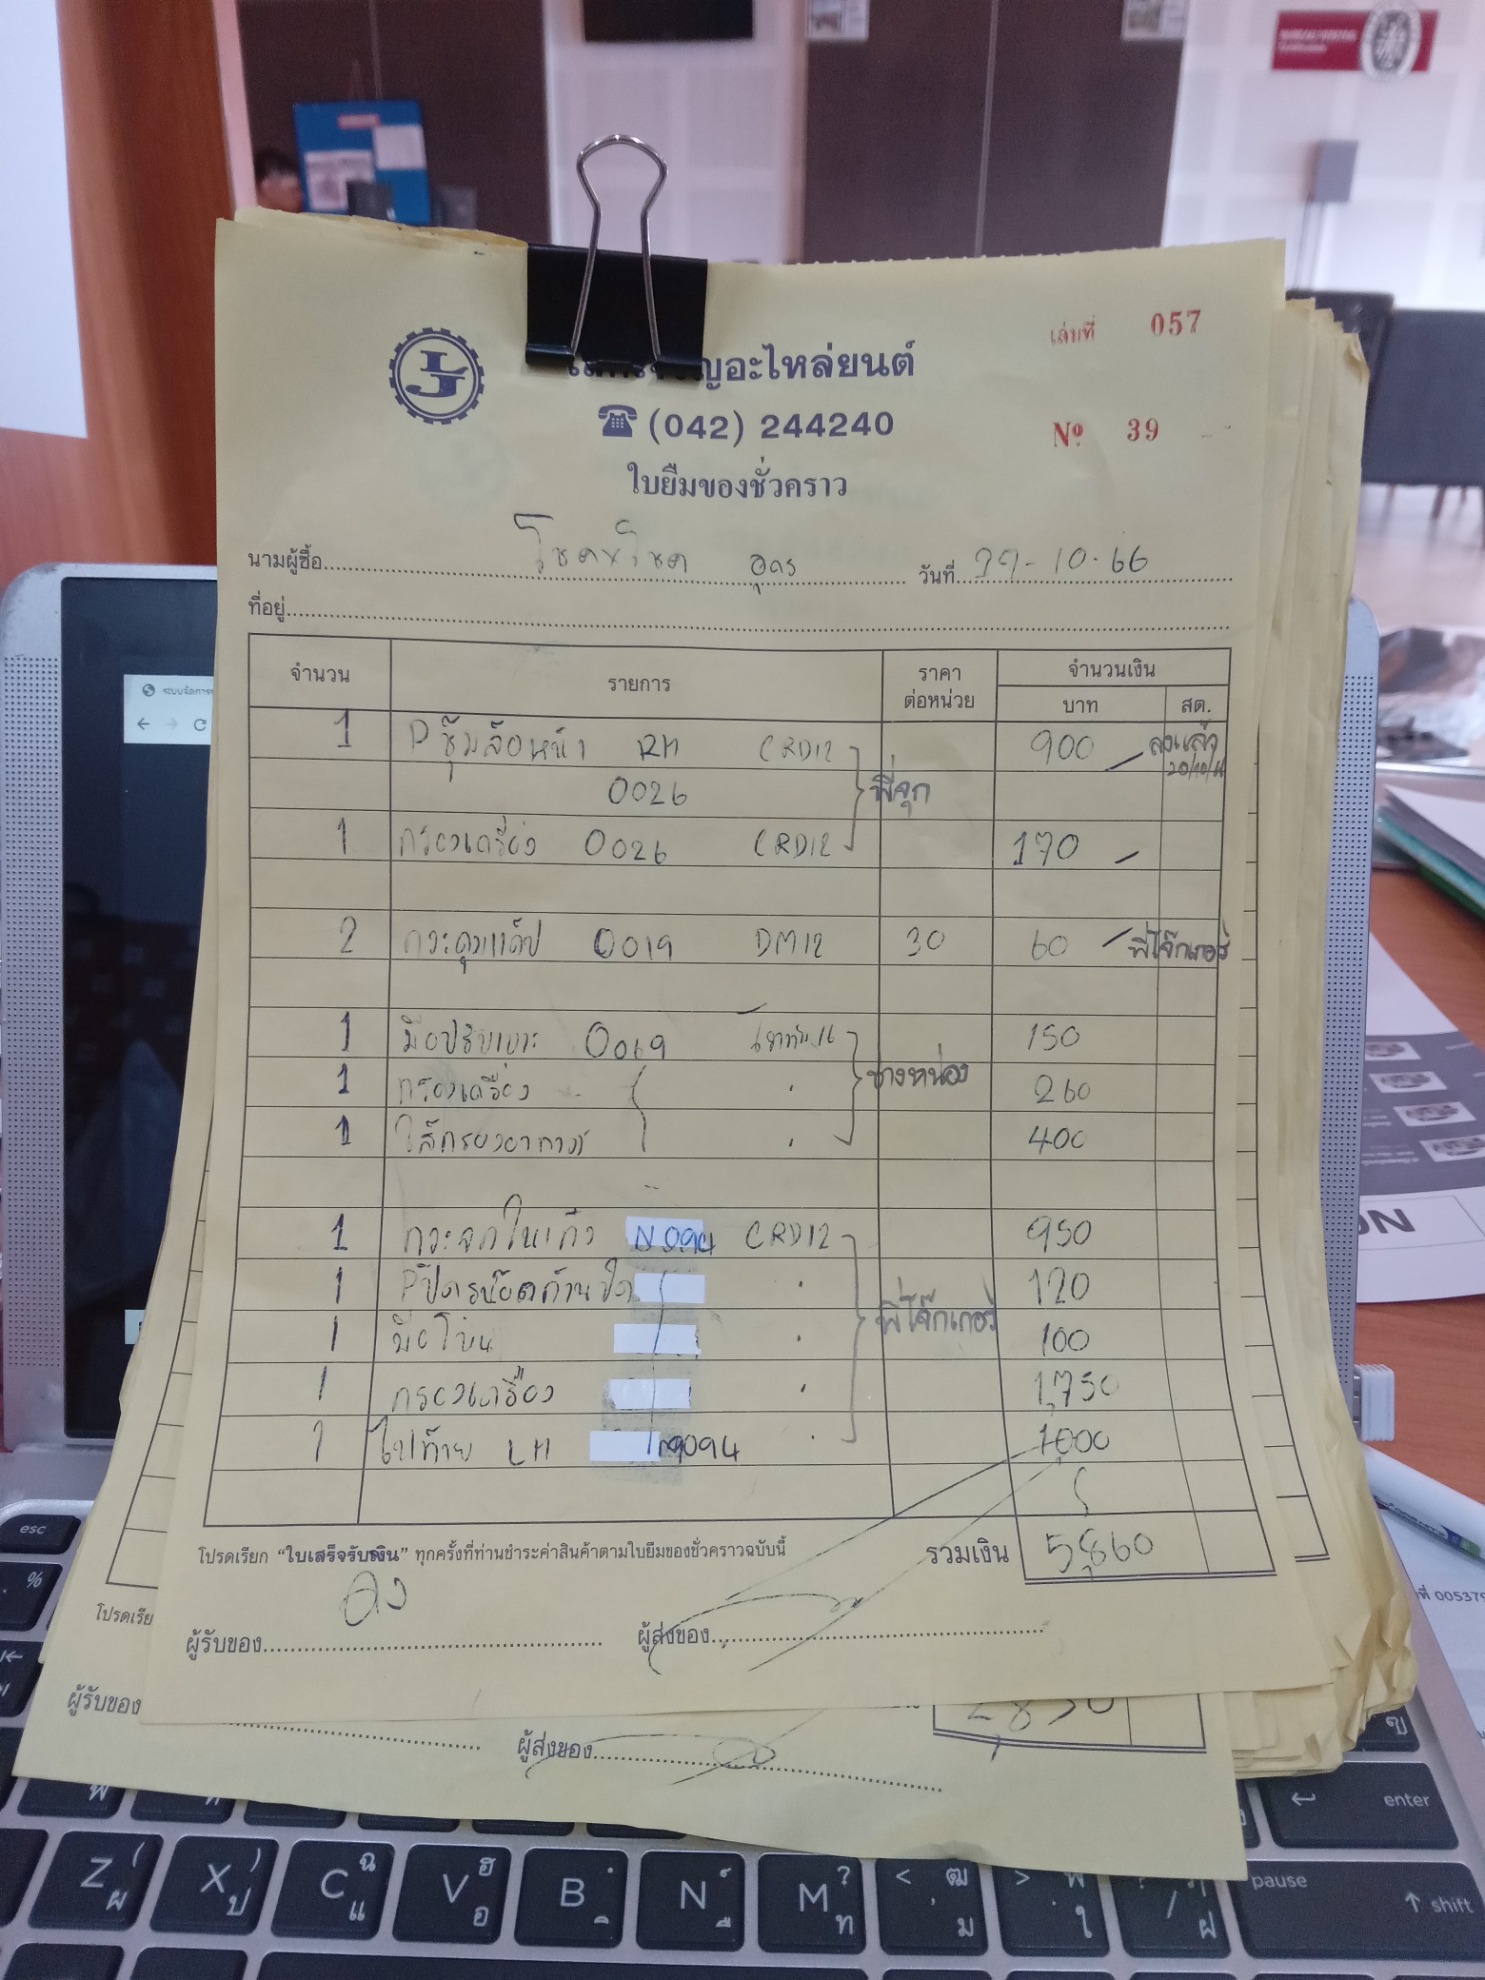 เล่มที่ 057
ญอะไหล่ยนต์
(042) 244240
Nº 39
ใบยืมของชั่วคราว
นามผู้ซื้อ โชคชโชค อุดร วันที่ 27-10-66
ที่อยู่
จำนวน รายการ ราคาต่อหน่วย จำนวนเงิน
บาท สต.
1 Pซุ้มล้อหน้า RH CRD12 900 ลงแล้ว
0026 พี่จุก
1 กรองเครื่อง 0026 CRD12 170
2 กระดุมแค็ป 0019 DM12 30 60 พี่โจ๊กเกอร์
1 มือปรับเบาะ 0069 150
1 กรองเครื่อง ช่างหน่อง 260
1 ไส้กรองอากาศ 400
1 กระจกในเก๋ง N094 CRD12 950
1 120
1 มือโหน พี่โจ๊กเกอร์ 100
1 กรองเครื่อง 1,750
1 ไฟท้าย LH N094 1,000
โปรดเรียก "ใบเสร็จรับเงิน" ทุกครั้งที่ท่านชำระค่าสินค้าตามใบยืมของชั่วคราวฉบับนี้ รวมเงิน 5,860
ผู้รับของ ผู้ส่งของ
โปรดเรีย
ผู้รับของ ผู้ส่งของ 2,830
esc
enter
pause
shift
Z X C V B N M
ที่ 005379